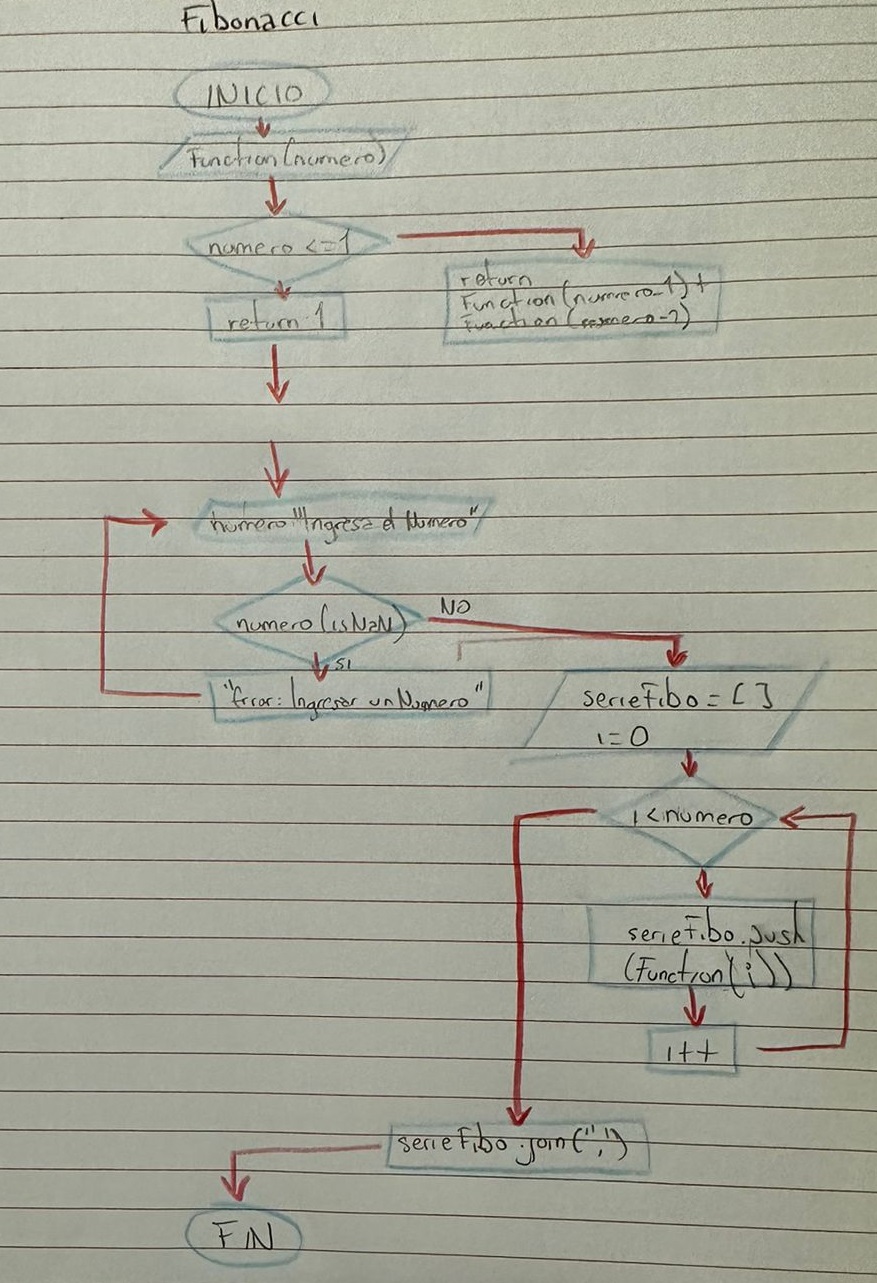 Fibonacci
INICIO
Function(numero)
numero <=1
return 1
return
Function(numero-1)+
Function(numero-2)
numero "Ingresa el Numero"
numero(isNaN)
NO
SI
"Error: Ingresar un Numero"
serieFibo = [ ]
i=0
i<numero
serieFibo.push
(Function(i))
i++
serieFibo.join(",")
FIN